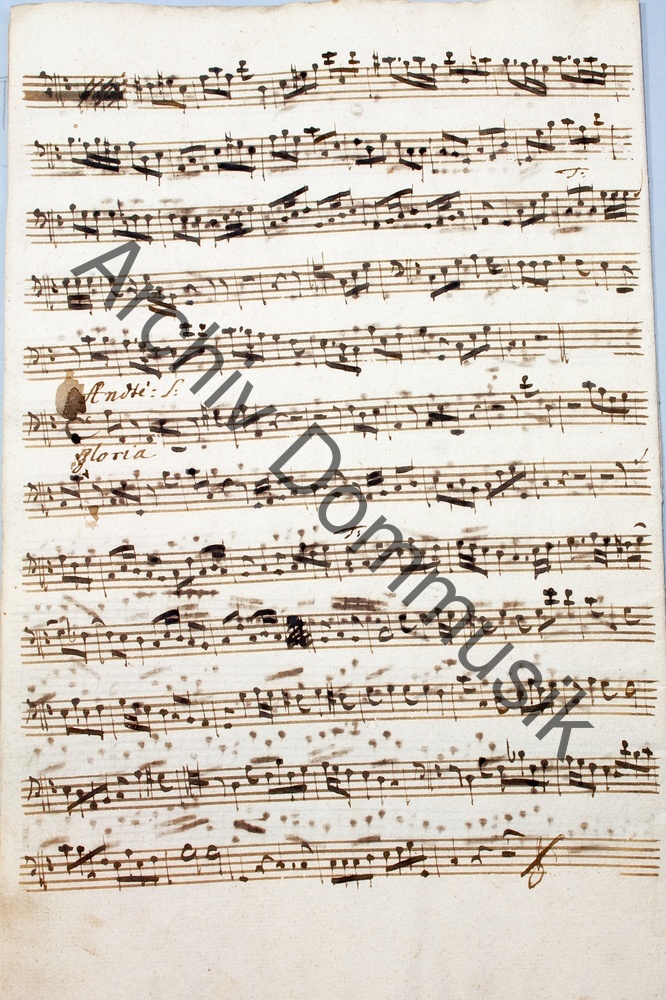 T:
Andte: S:
gloria
T:
Archiv Dommusik